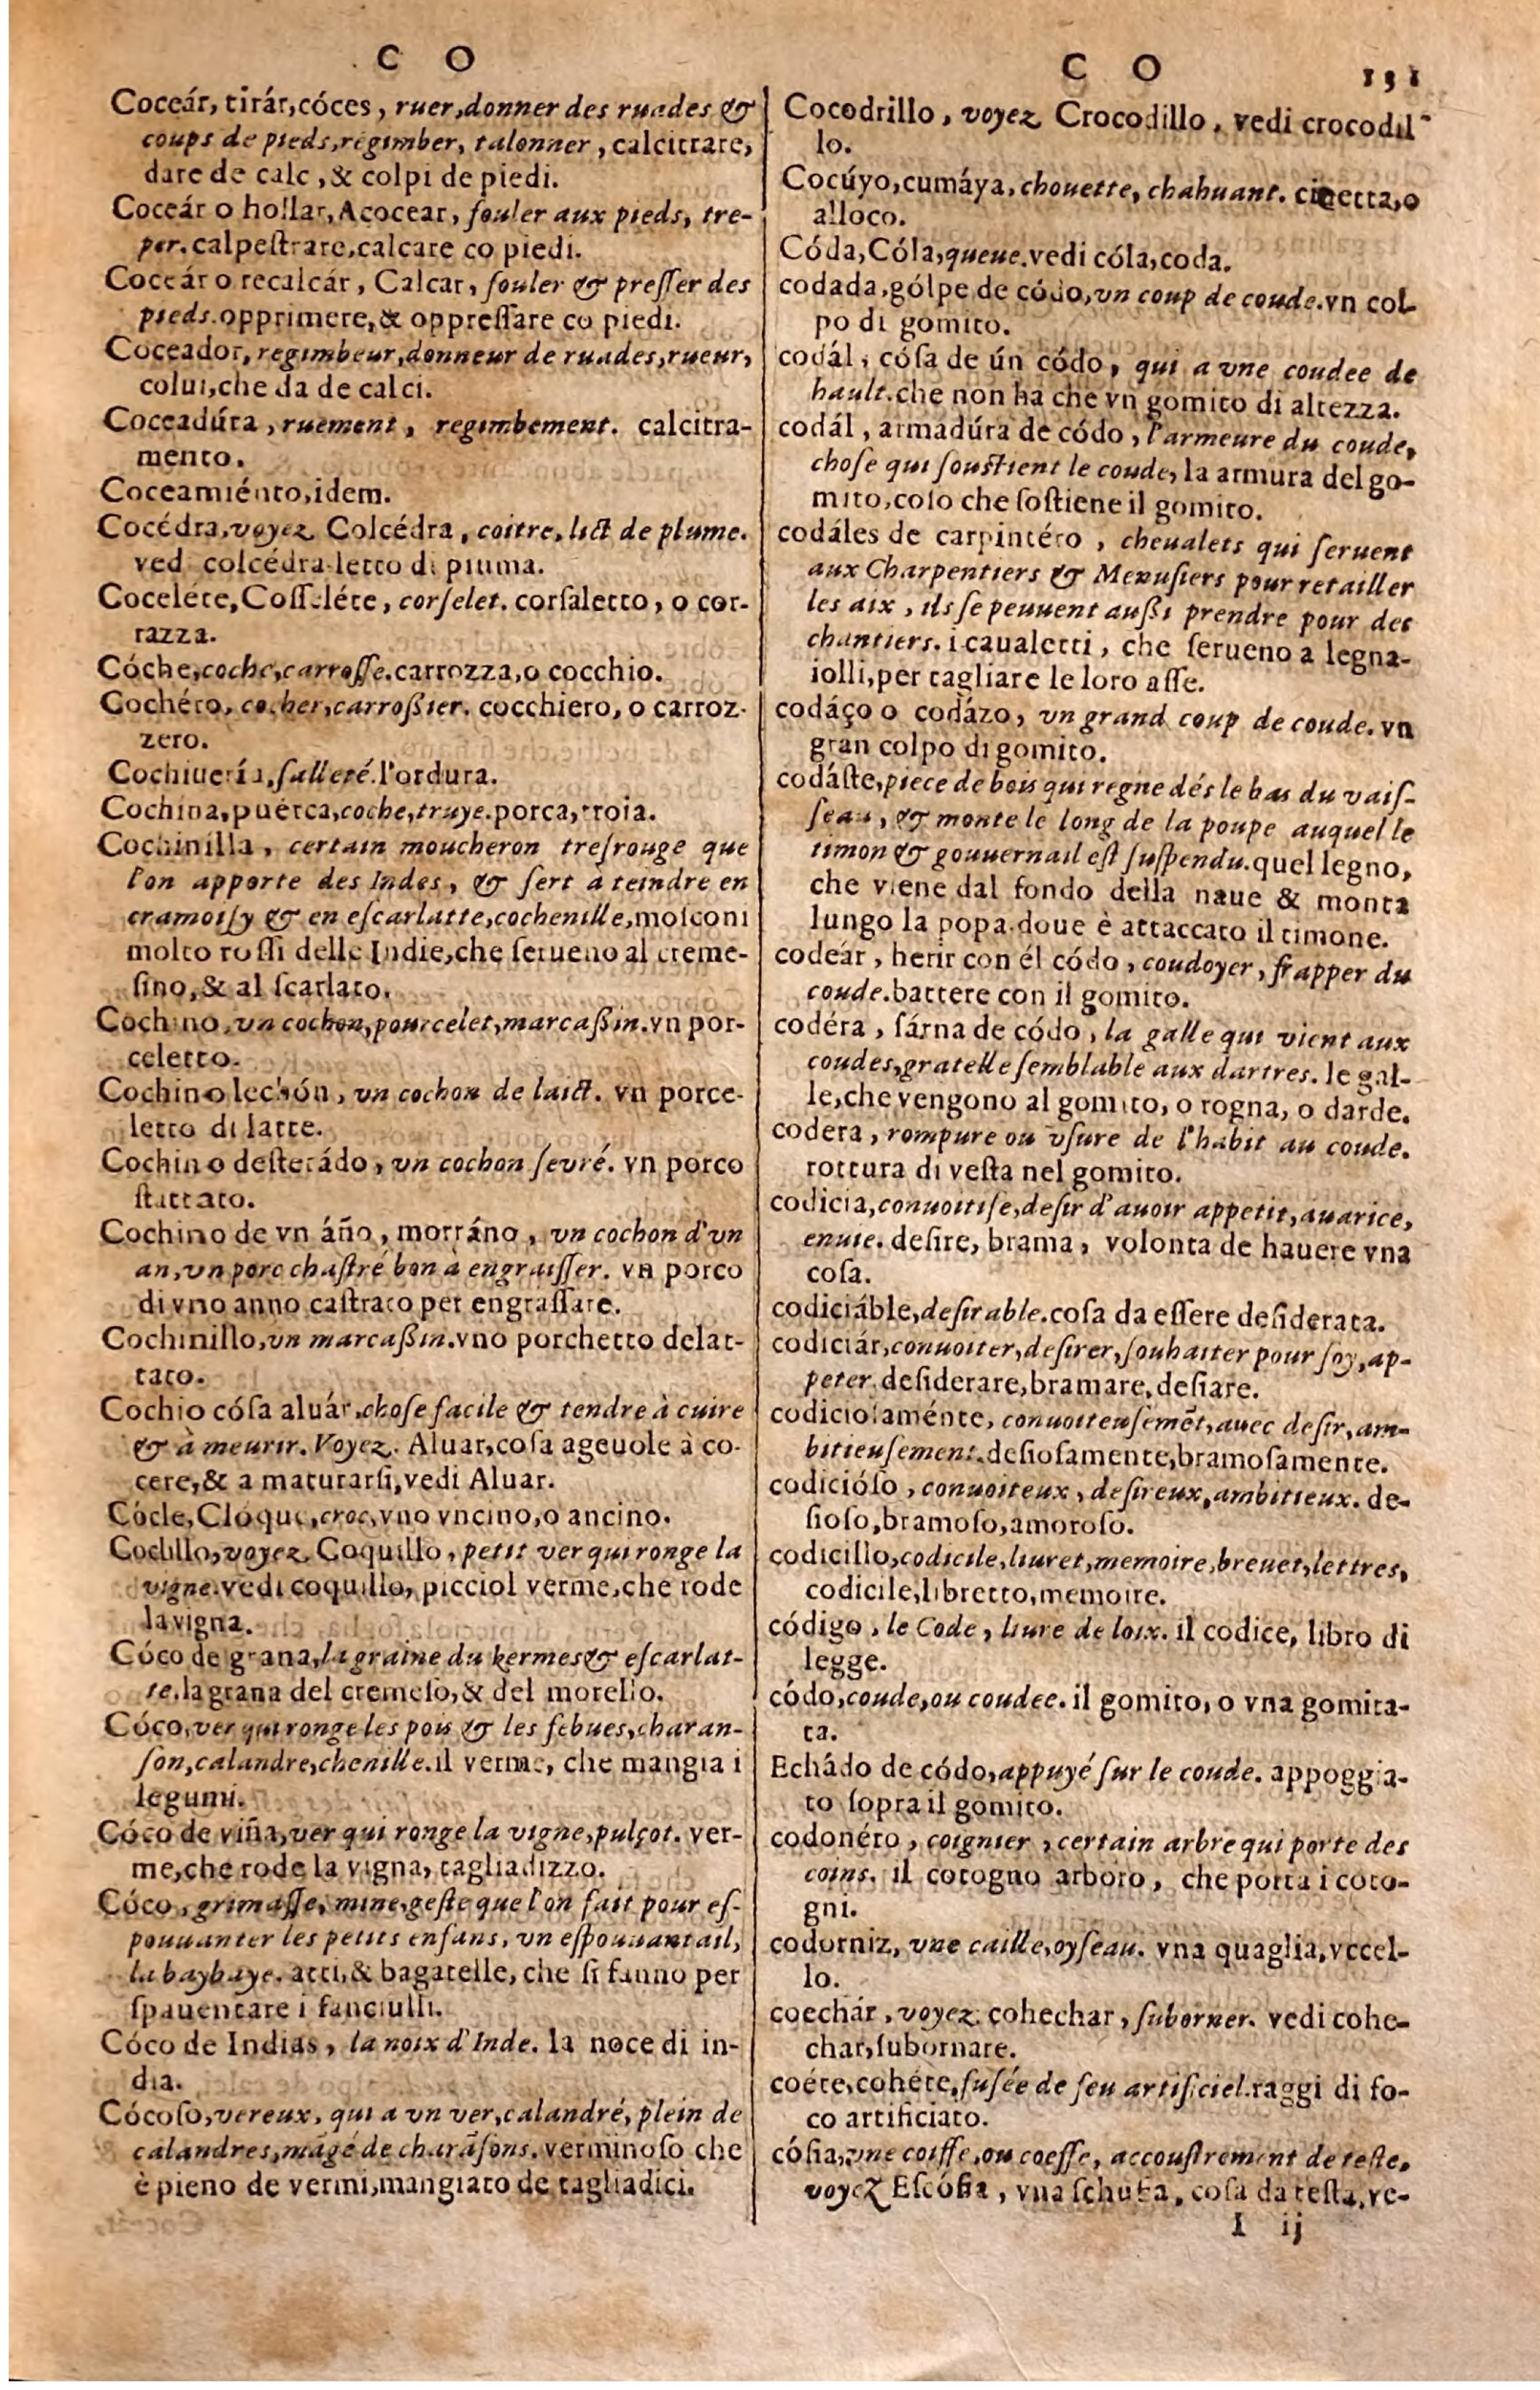 C O
Coceár, tirár,cóces, ruer,donner des ruades &
coups de pieds,regimber, talonner, calcitrare,
dare de calc,& colpi de piedi.
Coceár o hollar, Acocear, fouler aux pieds, tre-
per. calpeſtrare,calcare co piedi.
Coceár o recalcár, Calcar, fouler & preſſer des
pieds.opprimere,& oppreſſare co piedi.
Coceador, regimbeur,donneur de ruades,rueur,
colui,che da de calci.
Coceadúra, ruement, regimbement. calcitra-
mento.
Coceamiénto,idem.
Cocédra,voyez Colcédra, coitre, lict de plume.
ved colcédra letto di piuma.
Coceléte,Coſſeléte, corſelet. corſaletto, o cor-
razza.
Cóche,coche,carroſſe.carrozza,o cocchio.
Cochéro, cocher,carroßier. cocchiero, o carroz-
zero.
Cochinería,ſalleté.l'ordura.
Cochina,puérca,coche,truye.porca,troia.
Cochinilla, certain moucheron treſrouge que
l'on apporte des Indes, & ſert à teindre en
cramoiſy & en eſcarlatte,cochenille,moſconi
molto roſſi delle Indie,che ſerueno al creme-
ſino,& al ſcarlato.
Cochino,vn cochon,pourcelet,marcaßin.vn por-
celetto.
Cochino lechón, vn cochon de laict. vn porce-
letto di latte.
Cochino deſtetádo, vn cochon ſevré. vn porco
ſlattato.
Cochino de vn áño, morráno, vn cochon d'vn
an,vn porc chaſtré bon à engraiſſer. vn porco
di vno anno caſtrato per engraſſare.
Cochinillo,vn marcaßin.vno porchetto delat-
tato.
Cochio cóſa aluár,choſe facile & tendre à cuire
& à meurir. Voyez. Aluar,coſa ageuole à co-
cere,& a maturarſi,vedi Aluar.
Cócle,Clóque,croc,vno vncino,o ancino.
Coclillo,voyez Coquillo, petit ver qui ronge la
vigne.vedi coquillo, picciol verme,che rode
la vigna.
Cóco de grana,la graine du kermes & eſcarlat-
te.la grana del cremeſo,& del morello.
Cóco,ver qui ronge les pois & les febues,charan-
ſon,calandre,chenille.il verme, che mangia i
legumi.
Cóco de viña,ver qui ronge la vigne,pulçot. ver-
me,che rode la vigna, tagliadizzo.
Cóco, grimaſſe, mine,geſte que l'on fait pour eſ-
pouuanter les petits enfans, vn eſpouuantail,
la baybaye. atti,& bagatelle, che ſi fanno per
ſpauentare i fanciulli.
Cóco de Indias, la noix d'Inde. la noce di in-
dia.
Cócoſo,vereux, qui a vn ver,calandré, plein de
calandres,māgé de charāſons. verminoſo che
è pieno de vermi,mangiato de tagliadici.
C O 131
Cocodrillo, voyez Crocodillo, vedi crocodil-
lo.
Cocúyo,cumáya, chouette, chahuant. ciuetta,o
alloco.
Códa,Cóla,queue.vedi cóla,coda.
codada,gólpe de códo,vn coup de coude.vn col-
po di gomito.
codál, cóſa de ún códo, qui a vne coudee de
hault.che non ha che vn gomito di altezza.
codál, armadúra de códo, l'armeure du coude,
choſe qui ſouſtient le coude, la armura del go-
mito,colo che ſoſtiene il gomito.
codáles de carpintéro, cheualets qui ſeruent
aux Charpentiers & Menuſiers pour retailler
les aix, ils ſe peuuent außi prendre pour des
chantiers. i caualetti, che ſerueno a legna-
iolli,per tagliare le loro aſſe.
codáço o codázo, vn grand coup de coude. vn
gran colpo di gomito.
codáſte,piece de bois qui regne dés le bas du vaiſ-
ſeau, & monte le long de la poupe auquel le
timon & gouuernail eſt ſuſpendu.quel legno,
che viene dal fondo della naue & monta
lungo la popa.doue è attaccato il timone.
codeár, herir con él códo, coudoyer, frapper du
coude.battere con il gomito.
codéra, ſárna de códo, la galle qui vient aux
coudes,gratelle ſemblable aux dartres. le gal-
le,che vengono al gomito, o rogna, o darde.
codera, rompure ou vſure de l'habit au coude.
rottura di veſta nel gomito.
codicia,conuoitiſe,deſir d'auoir appetit,auarice,
enuie. deſire, brama, volonta de hauere vna
coſa.
codiciáble,deſirable.coſa da eſſere deſiderata.
codiciár,conuoiter,deſirer,ſouhaiter pour ſoy,ap-
peter.deſiderare,bramare,deſiare.
codicioſaménte, conuoiteuſemēt,auec deſir,am-
bitieuſement.deſioſamente,bramoſamente.
codicióſo, conuoiteux, deſireux,ambitieux. de-
ſioſo,bramoſo,amoroſo.
codicillo,codicile,liuret,memoire,breuet,lettres,
codicile,libretto,memoire.
código, le Code, liure de loix. il codice, libro di
legge.
códo,coude,ou coudee. il gomito, o vna gomita-
ta.
Echádo de códo,appuyé ſur le coude. appoggia-
to ſopra il gomito.
codonéro, coignier, certain arbre qui porte des
coins. il cotogno arboro, che porta i coto-
gni.
codorniz, vne caille,oyſeau. vna quaglia,vccel-
lo.
coechár, voyez cohechar, ſuborner. vedi cohe-
char,ſubornare.
coéte,cohéte,fuſée de feu artificiel.raggi di fo-
co artificiato.
cófia,vne coiffe,ou coeffe, accouſtrement de teſte,
voyez Eſcófia, vna ſchufia, coſa da teſta,ve-
I ij